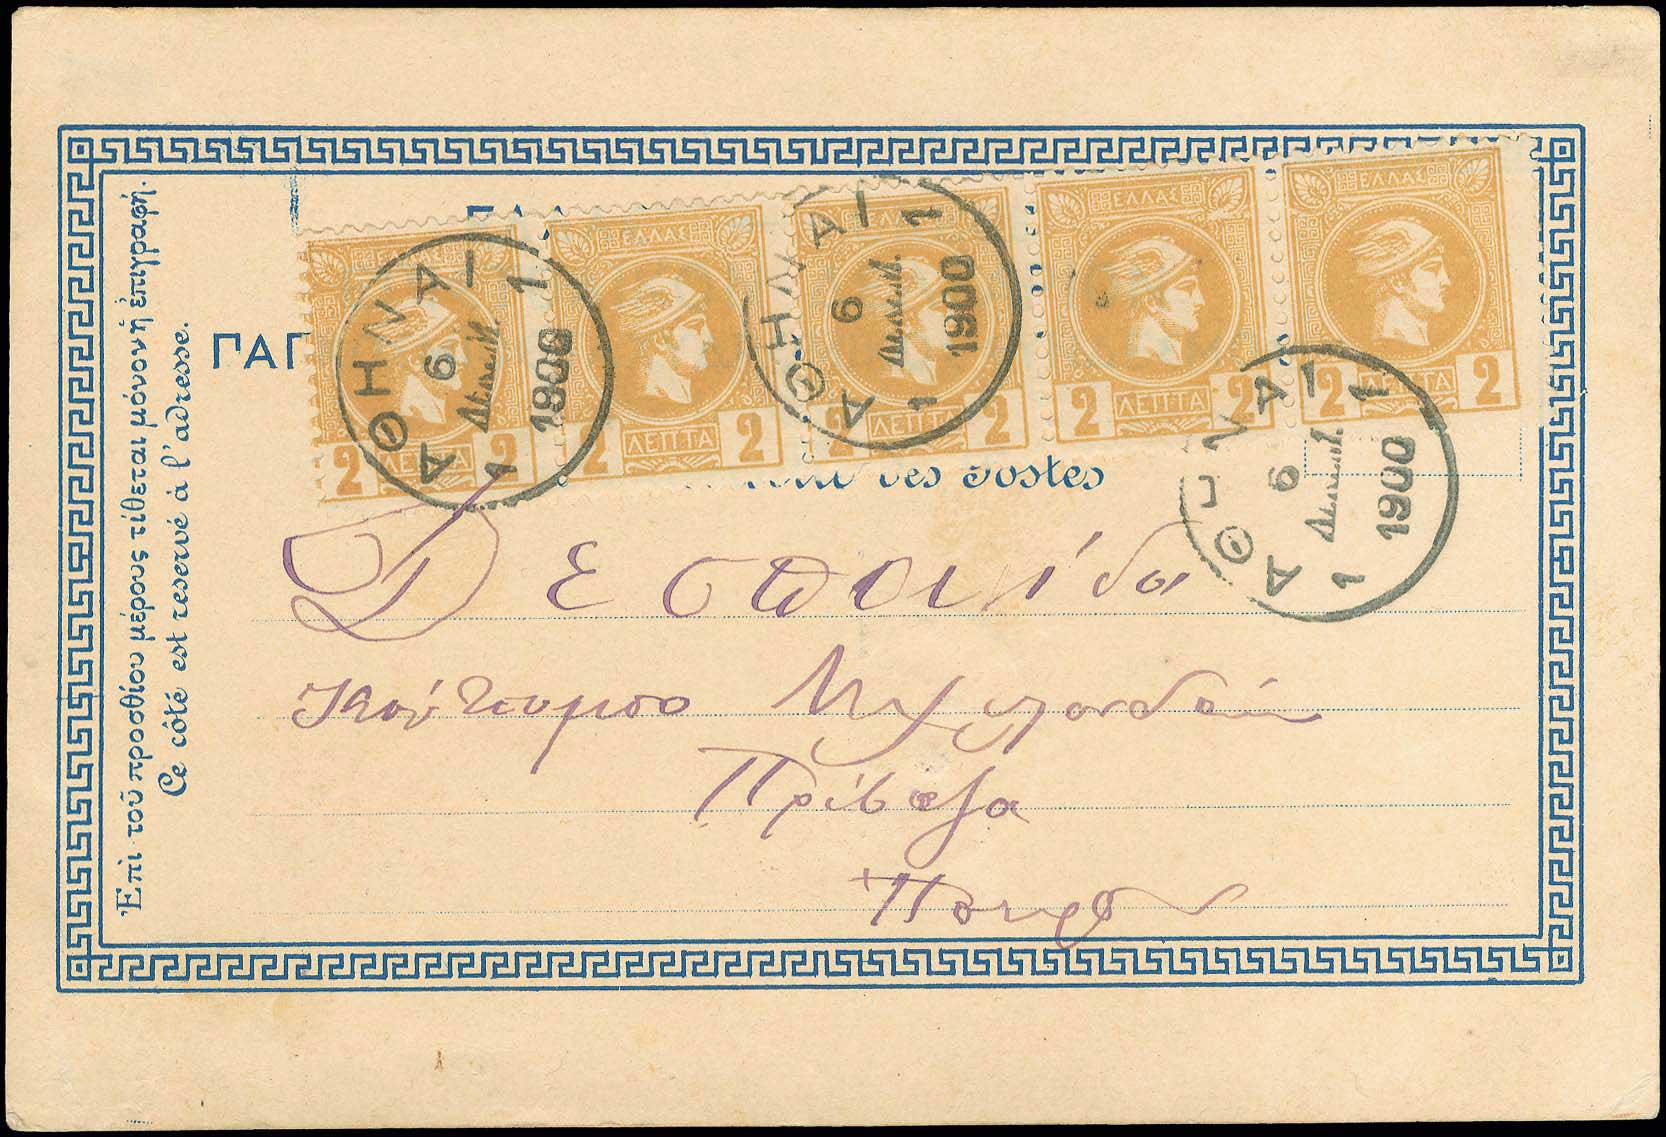 Ἐπὶ τοῦ προσθίου μέρους τίθεται μόνον ἡ ἐπιγραφή.
Ce côté est reservé à l'adresse.
ΕΛΛΑΣ
2 ΛΕΠΤΑ 2
ΕΛΛΑΣ
2 ΛΕΠΤΑ 2
ΕΛΛΑΣ
2 ΛΕΠΤΑ 2
ΕΛΛΑΣ
2 ΛΕΠΤΑ 2
ΕΛΛΑΣ
2 ΛΕΠΤΑ 2
ΑΘΗΝΑΙ 1
6
1900
1
ΑΘΗΝΑΙ 1
6
1900
1
ΑΘΗΝΑΙ 1
6
1900
1
ΠΑΓ
des Postes
Δεσποινίδα
Πρέβεζα